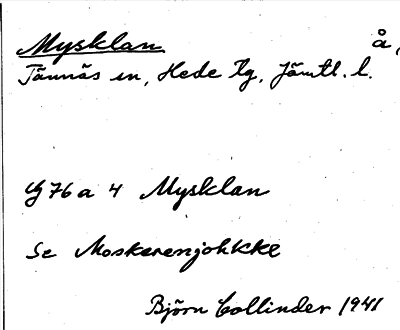 Mysklan å,
Tännäs sn, Hede tg, Jämtl. l.
Gj 76 a 4 Mysklan
Se Moskerenjohkke
Björn Collinder 1941